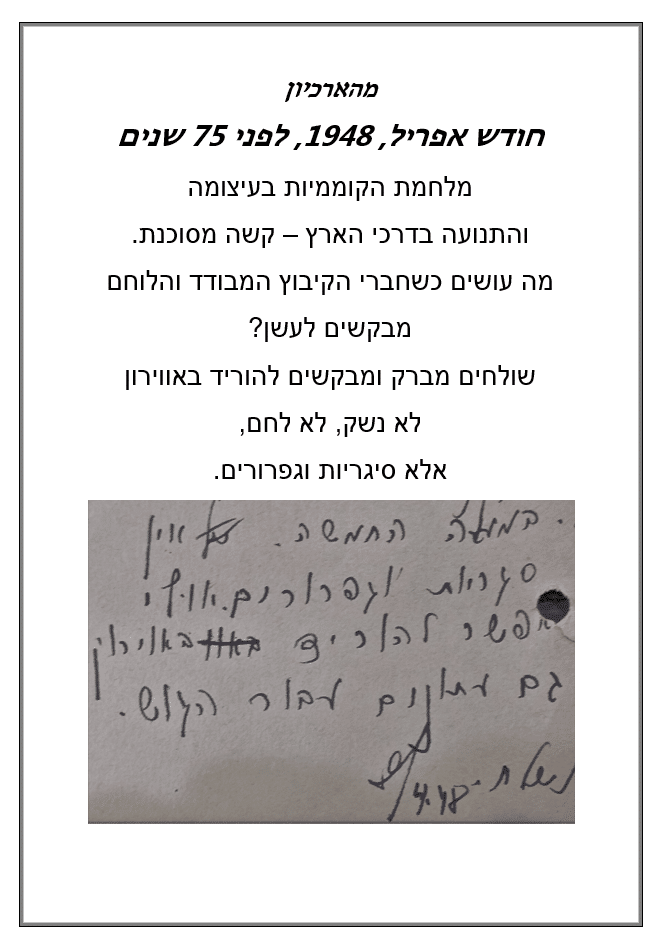 מהארכיון
חודש אפריל, 1948, לפני 75 שנים
מלחמת הקוממיות בעיצומה
והתנועה בדרכי הארץ – קשה מסוכנת.
מה עושים כשחברי הקיבוץ המבודד והלוחם
מבקשים לעשן?
שולחים מברק ומבקשים להוריד באווירון
לא נשק, לא לחם,
אלא סיגריות וגפרורים.
החמשה. אין
סגריות וגפרורים. אולי
אפשר להוריד באוירון
גם עתונים עבור הגוש.
נשלח - 4.48